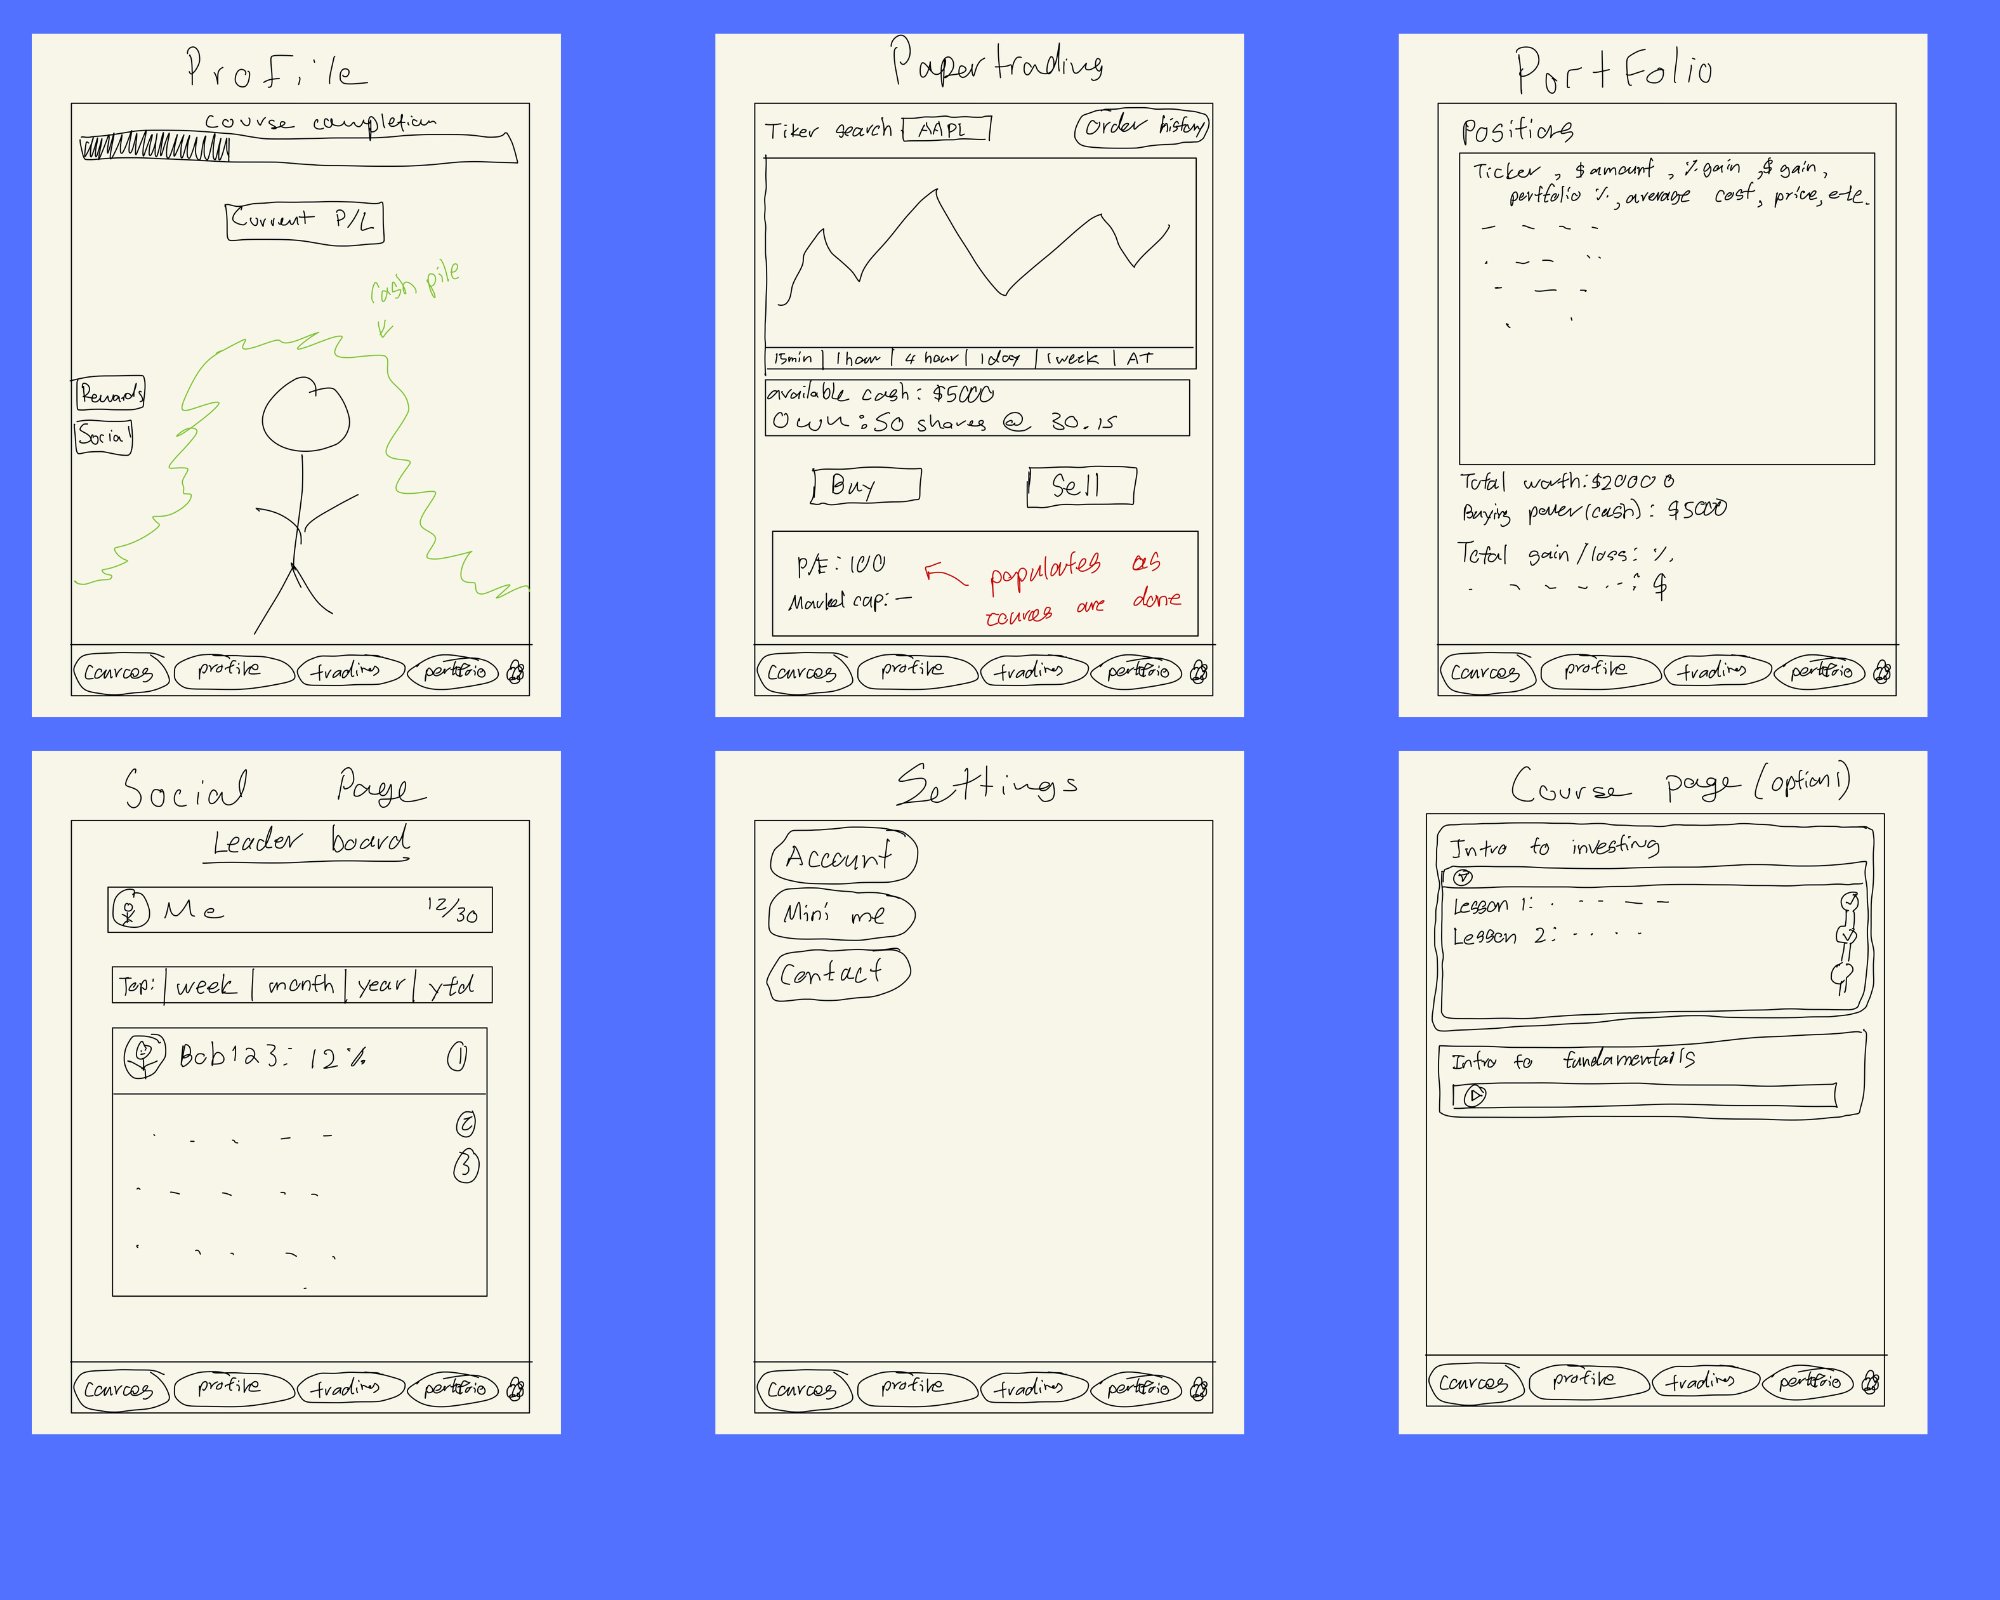 Profile
course completion
Current P/L
cash pile
Rewards
Social
courses profile trading portfolio
Papertrading
Tiker search AAPL Order history
15min 1hour 4 hour 1day 1week AT
available cash: $5000
Own: 50 shares @ 30.15
Buy Sell
P/E: 100
Market cap: —
populates as
courses are done
courses profile trading portfolio
Portfolio
Positions
Ticker, $ amount, % gain, $ gain,
portfolio %, average cost, price, etc.
Total worth: $20000
Buying power (cash): $5000
Total gain/loss: %
: $
courses profile trading portfolio
Social Page
Leader board
Me 12/30
Top: week month year ytd
Bob123: 12% 1
2
3
courses profile trading portfolio
Settings
Account
Mini me
Contact
courses profile trading portfolio
Course page (option 1)
Intro to investing
Lesson 1:
Lesson 2:
Intro to fundamentalls
courses profile trading portfolio